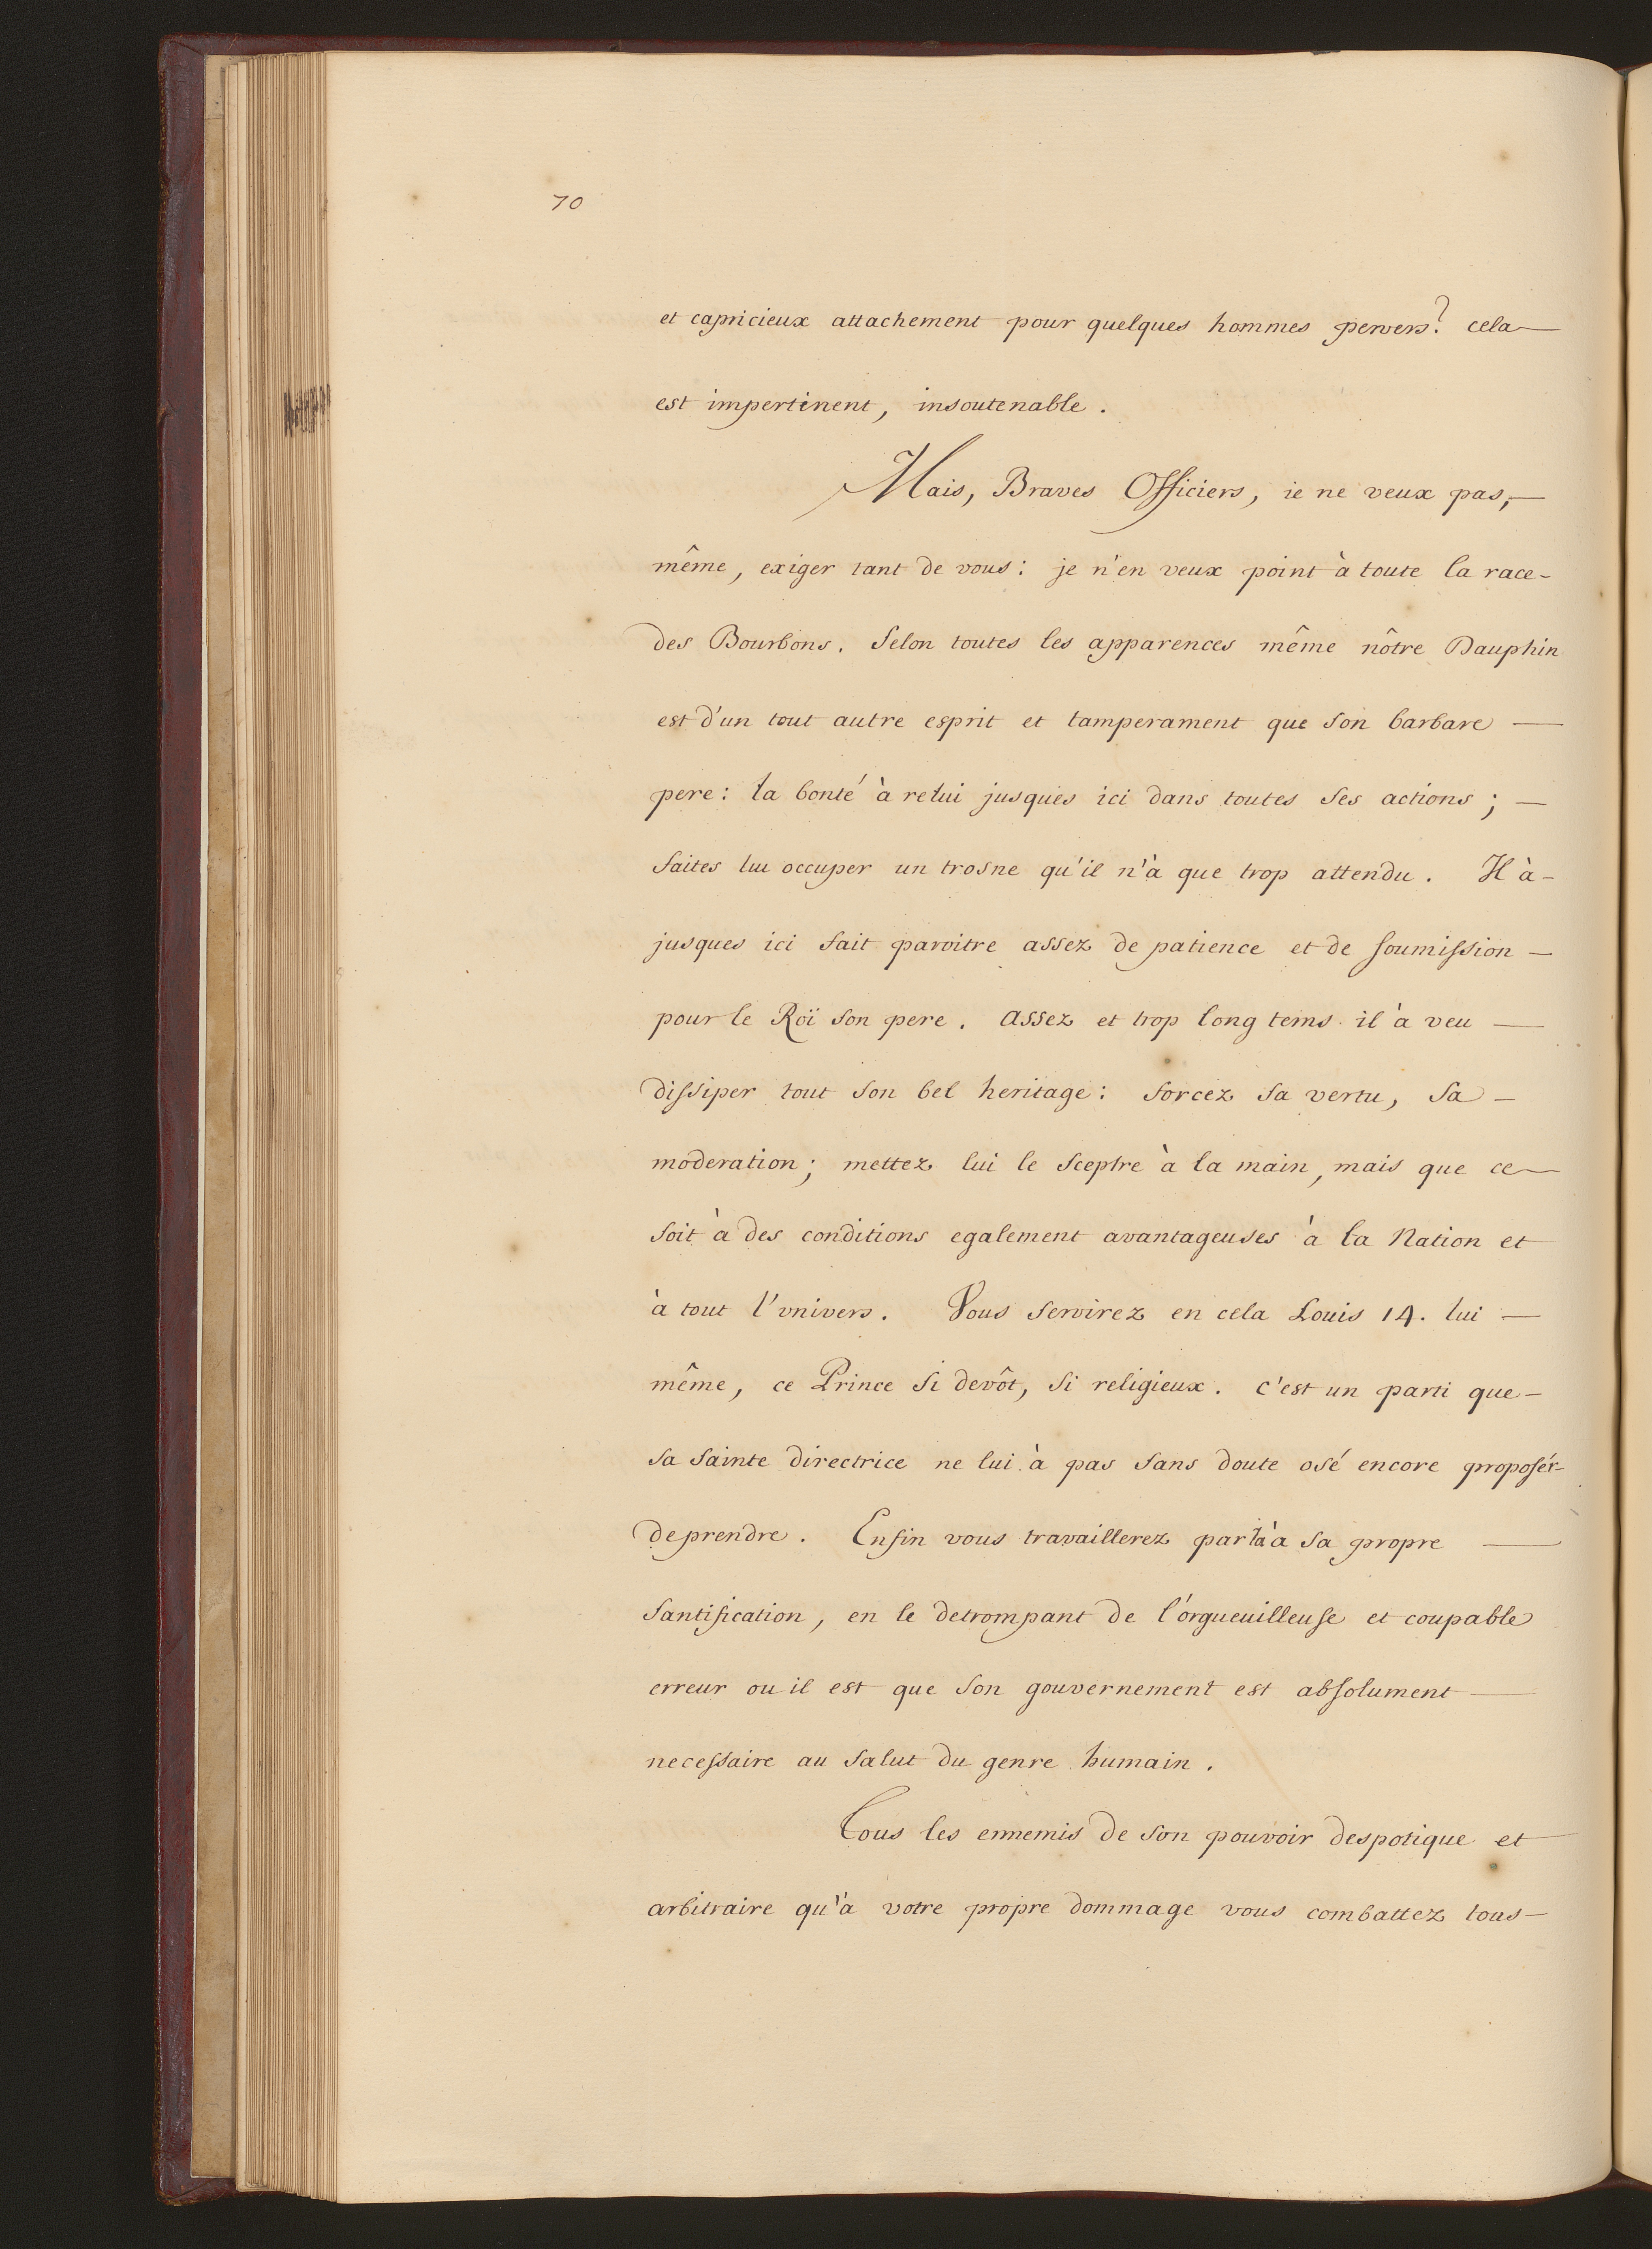 70
et capricieux attachement pour quelques hommes pervers? cela
est impertinent, insoutenable.
Mais, Braves Officiers, ie ne veux pas,
même, exiger tant de vous: je n'en veux point à toute la race
des Bourbons. Selon toutes les apparences même nôtre Dauphin
est d'un tout autre esprit et tamperament que son barbare
pere: la bonté à relui jusques ici dans toutes ses actions;
faites lui occuper un trosne qu'il n'à que trop attendu. Il à
jusques ici fait paroitre assez de patience et de soumission
pour le Roï son pere. assez et trop long tems il à veu
dissiper tout son bel heritage: forcez sa vertu, sa
moderation; mettez lui le sceptre à la main, mais que ce
soit à des conditions egalement avantageuses à la Nation et
à tout l'vnivers. Vous servirez en cela Louis 14. lui
même, ce Prince si devôt, si religieux. c'est un parti que
sa sainte directrice ne lui à pas sans doute osé encore proposér
de prendre. Enfin vous travaillerez par là à sa propre
santification, en le detrompant de l'orgueuilleuse et coupable
erreur ou il est que son gouvernement est absolument
necessaire au salut du genre humain.
Tous les ennemis de son pouvoir despotique et
arbitraire qu'à votre propre dommage vous combattez tous